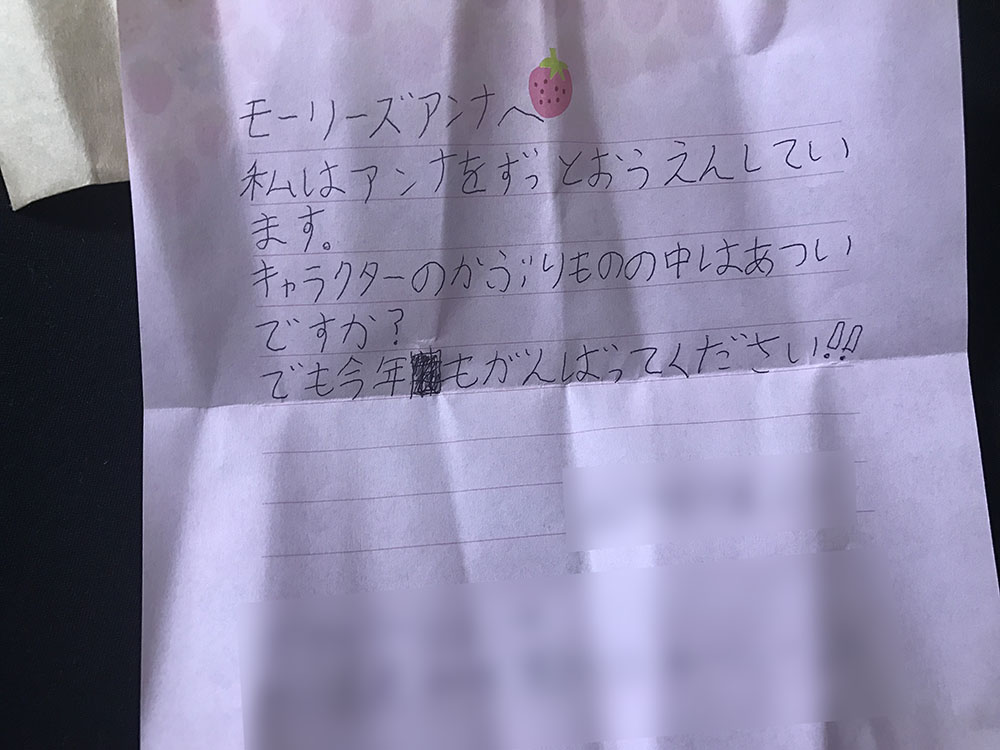 モーリーズアンナへ
私はアンナをずっとおうえんしてい
ます。
キャラクターのかぶりものの中はあつい
ですか?
でも今年もがんばってください!!